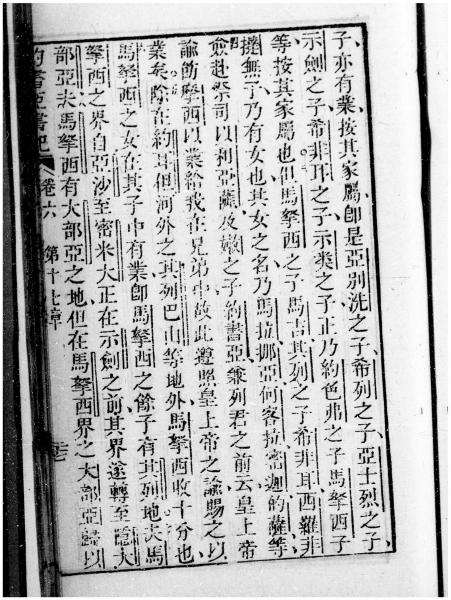 子亦有業按其家屬卽是亞別洗之子希列之子亞士烈之子
示劍之子希非耳之子示类之子正乃約色弗之子馬拏西子
等按其家屬也但馬拏西之子馬吉其列之子希非耳西羅非
撻無子乃有女也其女之名乃馬拉挪亞何客拉密迦的薩等
僉赴祭司以利亞薩及嫩之子約書亞兼列君之前云皇上帝
諭飭摩西以業給我在兄弟中故此遵照皇上帝之諭賜之以
業矣除在約耳但河外之其列巴山等地外馬拏西收十分也
馬拏西之女在其子中有業卽馬拏西之餘子有其列地夫馬
拏西之界自亞沙至密米大正在示劍之前其界遂轉至隱大
部亞夫馬拏西有大部亞之地但在馬拏西界之大部亞歸以
約書亞書記 卷六 第十七章